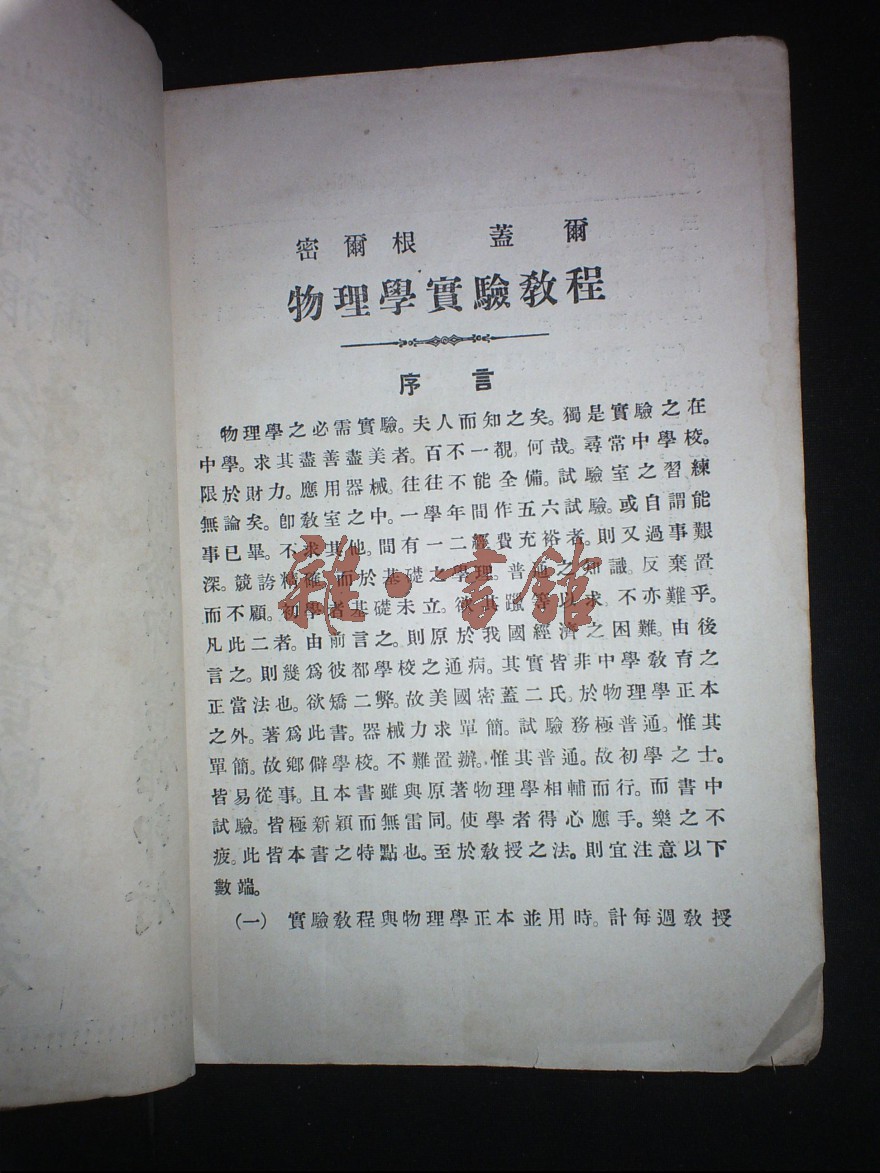 密爾根 蓋爾
物理學實驗教程
序言
物理學之必需實驗。夫人而知之矣。獨是實驗之在
中學。求其盡善盡美者。百不一覩。何哉。尋常中學校。
限於財力。應用器械。往往不能全備。試驗室之習練
無論矣。卽教室之中。一學年間作五六試驗。或自謂能
事已畢。不求其他。間有一二經費充裕者。則又過事艱
深。競誇精確。而於基礎之學理。普通之知識。反棄置
而不顧。初學者基礎未立。欲其躐等以求。不亦難乎。
凡此二者。由前言之。則原於我國經濟之困難。由後
言之。則幾爲彼都學校之通病。其實皆非中學教育之
正當法也。欲矯二弊。故美國密蓋二氏。於物理學正本
之外。著爲此書。器械力求單簡。試驗務極普通。惟其
單簡。故鄉僻學校。不難置辦。惟其普通。故初學之士。
皆易從事。且本書雖與原著物理學相輔而行。而書中
試驗。皆極新穎而無雷同。使學者得心應手。樂之不
疲。此皆本書之特點也。至於教授之法。則宜注意以下
數端。
(一) 實驗教程與物理學正本並用時。計每週教授
雜·書館